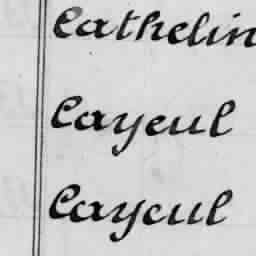 Cathelin
Cayeul
Cayeul